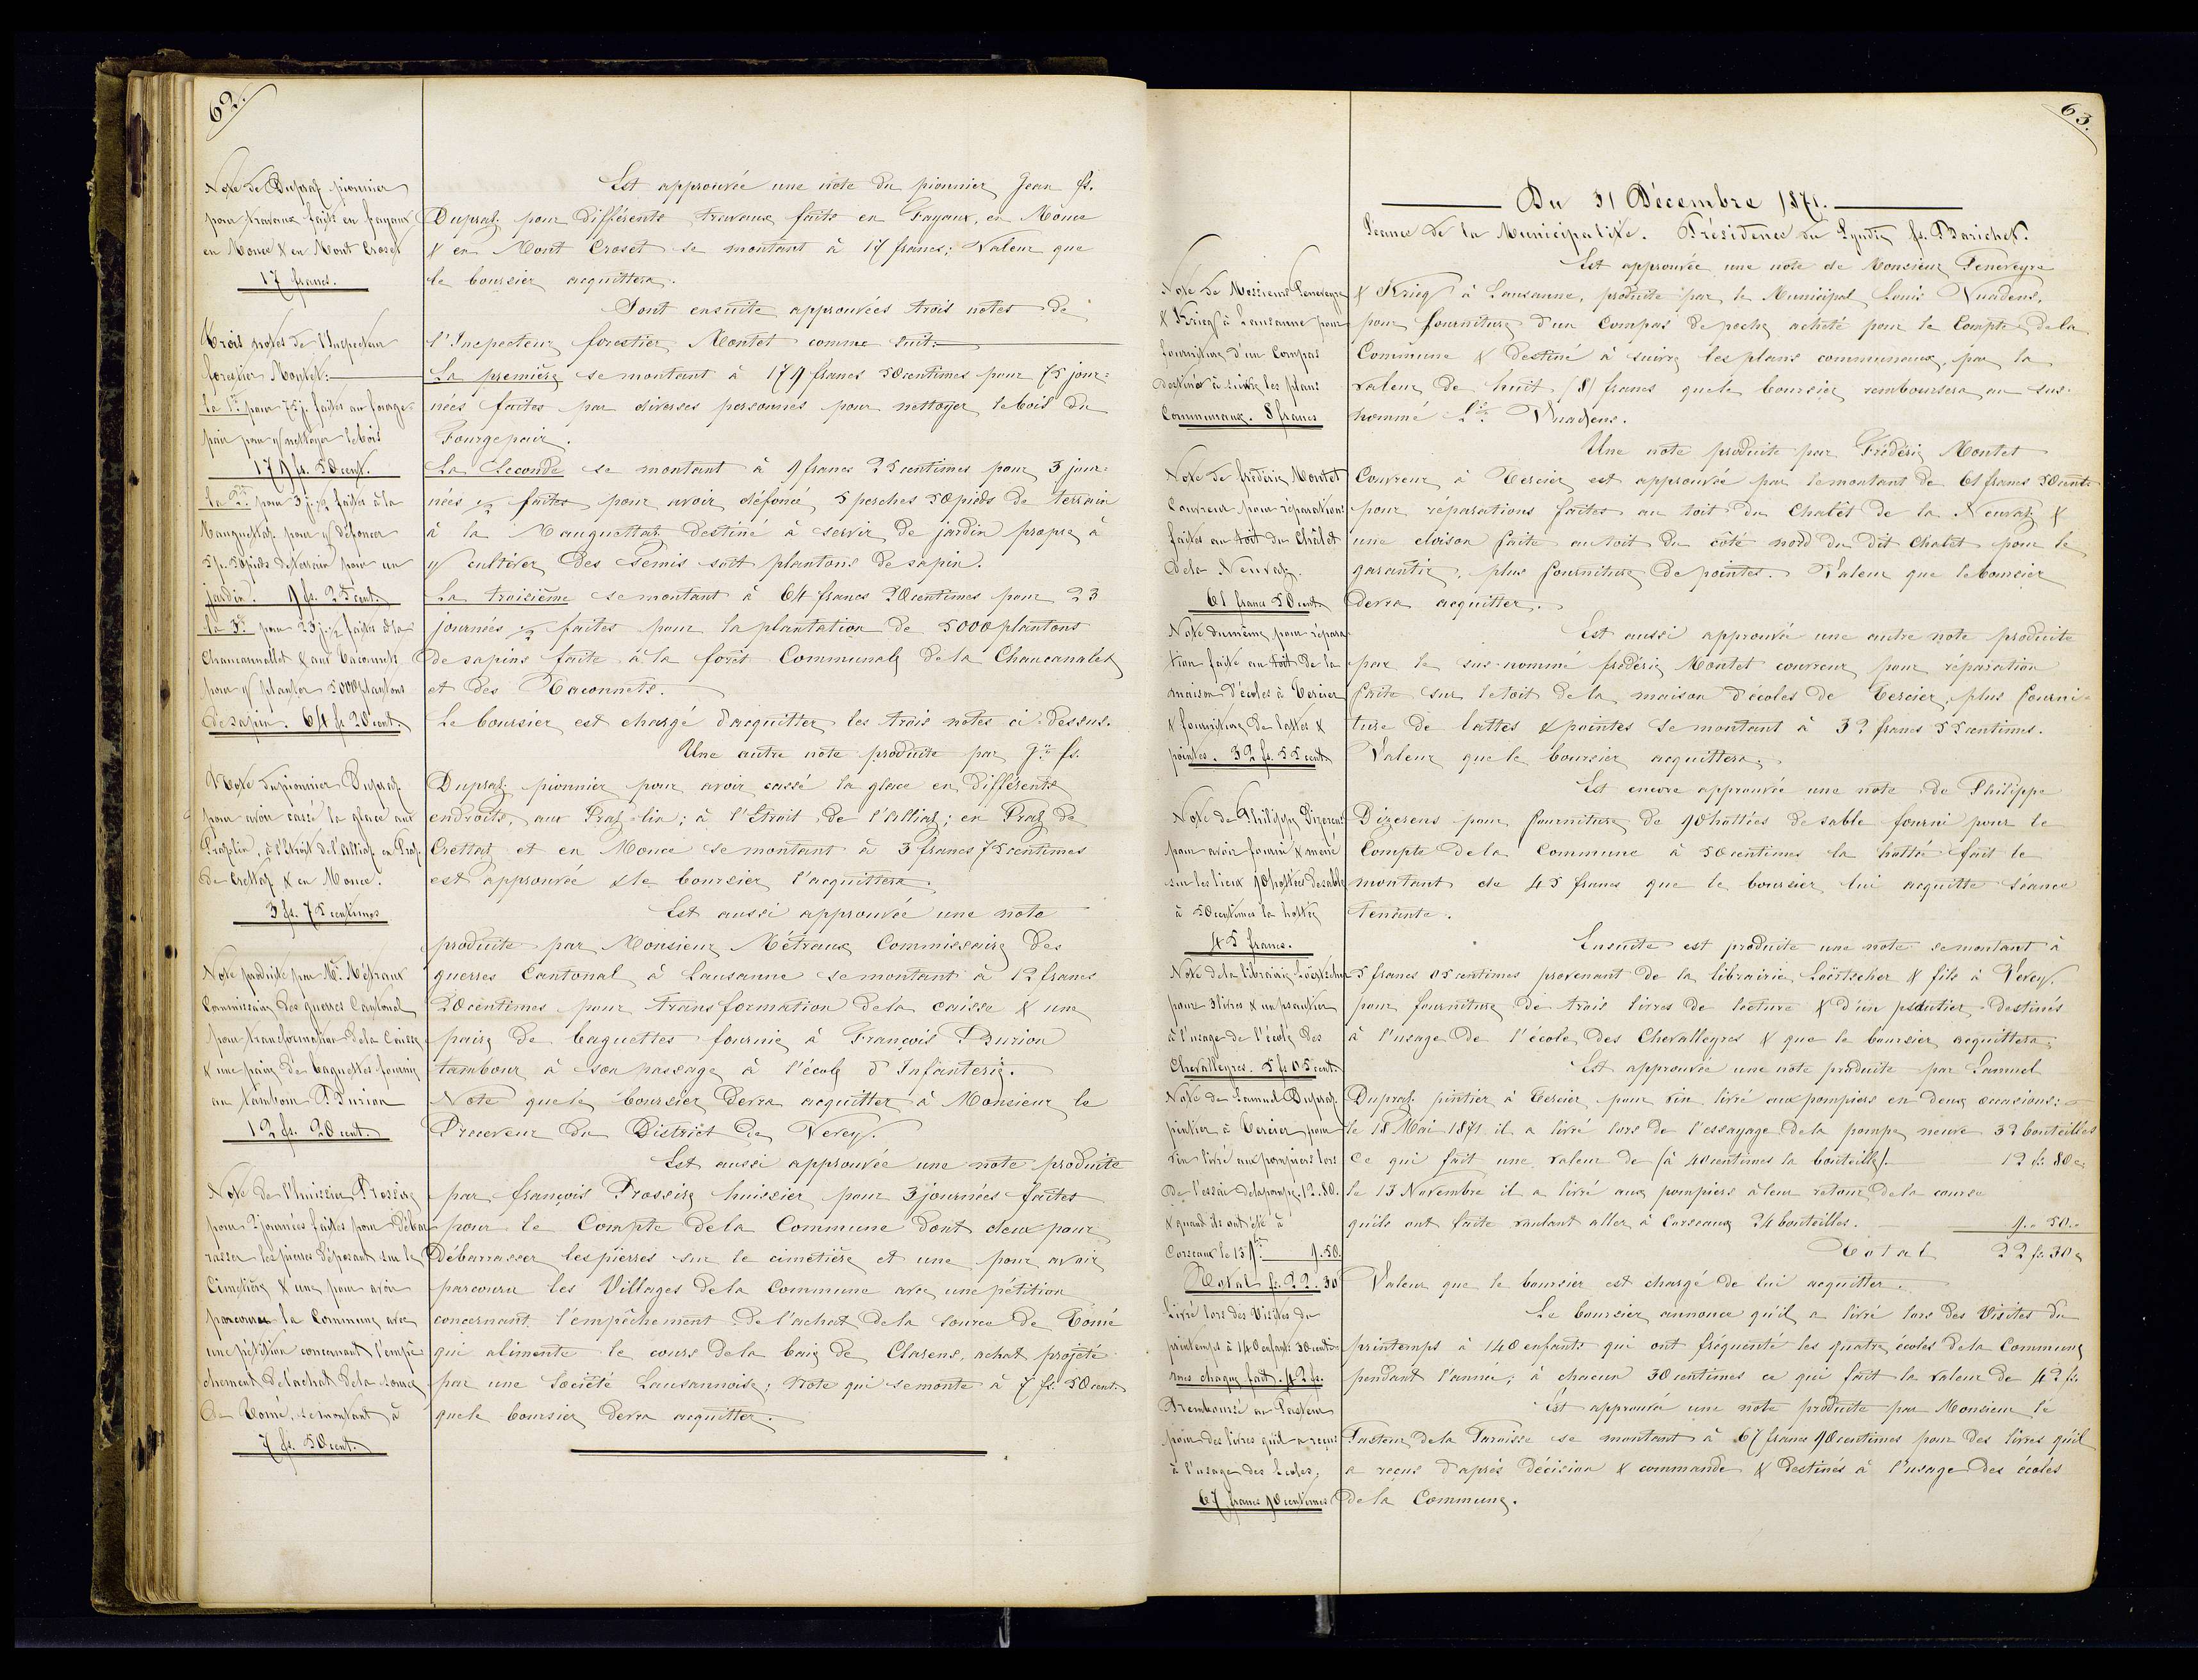 62.
Note de Dupraz pionnier
pour travaux faits en fayaux
en Mouce & en Mont Croset
17 francs.
Trois notes de l'Inspecteur
forestier Montet:
La 1re pour 75 j. faites au fourge-
pair pour y nettoyer le bois
179 fr. 50 cent.
La 2de pour 3 j. 1/2 faites à la
Mauguettaz pour y défoncer
5 p. 50 pieds de terrain pour un
jardin. 9 fr. 25 cent.
La 3e pour 23 j. 1/2 faites à la
Chaucannallet & aux Taconnets
pour y planter 5000 plantons
de sapin. 64 fr 20 cent.
Note du pionnier Dupraz
pour avoir cassé la glace aux
Prazlin, à l'Etroit de l'alliaz en Praz
de Crettaz & en Mouce.
3 fr. 75 centimes
Note produite par Mr. Métraux
Commissaire des guerres Cantonal
pour transformation de la Caisse
& une paire de baguettes fournie
au tambour Burion
12 fr. 20 cent.
Note de l'huissier Brossy
pour 2 journées faites pour débar-
rasser les pierres déposant sur le
Cimetière & une pour avoir
parcouru la Commune avec
une pétition concernant l'empê-
chement de l'achat de la source
de Comé, se montant à
7 fr. 50 cent.
Est approuvée une note du pionnier Jean fs.
Dupraz pour différents travaux faits en Fayaux, en Mouce
& en Mont Croset se montant à 17 francs; Valeur que
le boursier acquittera.
Sont ensuite approuvées trois notes de
l'Inspecteur forestier Montet comme suit:
La première se montant à 179 francs 50 centimes pour 75 jour-
nées faites par diverses personnes pour nettoyer le bois du
Fourgepair.
La Seconde se montant à 9 francs 25 centimes pour 3 jour-
nées 1/2 faites pour avoir défoncé 5 perches 50 pieds de terrain
à la Mauguettaz destiné à servir de jardin propre à
y cultiver des semis soit plantons de sapin.
La troisième se montant à 64 francs 20 centimes pour 23
journées 1/2 faites pour la plantation de 5000 plantons
de sapins faite à la forêt Communale de la Chaucanalet
et des Taconnets.
Le boursier est chargé d'acquitter les trois notes ci-dessus.
Une autre note produite par Jn fs.
Dupraz pionnier pour avoir cassé la glace en différents
endroits, aux Praz-lin; à l'Etroit de l'Alliaz; en Praz de
Crettaz et en Mouce se montant à 3 francs 75 centimes
est approuvée & le boursier l'acquittera.
Est aussi approuvée une note
produite par Monsieur Métraux Commissaire des
guerres Cantonal à Lausanne se montant à 12 francs
20 centimes pour transformation de la caisse & une
paire de baguettes fournie à François Burion
tambour à son passage à l'école d'Infanterie.
Note que le boursier devra acquitter à Monsieur le
Receveur du District de Vevey.
Est aussi approuvée une note produite
par françois Brossy huissier pour 3 journées faites
pour le Compte de la Commune dont deux pour
Débarrasser les pierres sur le cimetière et une pour avoir
parcouru les Villages de la Commune avec une pétition
concernant l'empêchement de l'achat de la source de Comé
qui alimente le cours de la baie de Clarens, achat projeté
par une Société Lausannoise; note qui se monte à 7 fr. 50 cent.
que le boursier devra acquitter.
63.
Du 31 Décembre 1871.
Séance de la Municipalité. Présidence du Syndic fs. Barichet.
Note de Messieurs Peneveyre
& Krieg à Lausanne pour
fourniture d'un Compas
destiné à suivre les plans
Communaux. 8 francs
Note de frédéric Montet
Couvreur pour réparations
faites au toit du Châlet
de la Neuvaz.
61 francs 50 cent.
Note du même pour répara-
tion faite au toit de la
maison d'écoles à Tercier
& fourniture de lattes &
pointes. 32 fr. 55 cent.
Note de Philippe Dizerens
pour avoir fourni & mené
sur les lieux 90 hottées de sable
à 50 centimes la hottée
45 francs.
Note de la librairie Loërtscher
pour 3 livres & un psautier
à l'usage de l'école des
Chevalleyres. 5 fr 05 cent.
Note de Samuel Dupraz
pintier à Tercier pour
vin livré aux pompiers lors
de l'essai de la pompe. 12.80.
& quand ils ont été à
Corseaux le 13 9bre 9.50.
Total fr. 22.30
Livré lors des Visites du
printemps à 140 enfants 30 centi-
mes chaque fait. 42 fr.
Remboursé au Pasteur
pour des livres qu'il a reçus
à l'usage des Ecoles,
67 francs 90 centimes
Est approuvée une note de Monsieur Peneveyre
& Krieg à Lausanne, produite par le Municipal Louis Vuadens,
pour fourniture d'un Compas de poche acheté pour le Compte de la
Commune & destiné à suivre les plans communaux, par la
valeur de huit (8) francs que le boursier remboursera au sus-
nommé Ls. Vuadens.
Une note produite par Frédéric Montet
Couvreur à Tercier est approuvée par le montant de 61 francs 50 cent.
pour réparations faites au toit du Chalêt de la Neuvaz &
une cloison faite au toit du côté nord du dit Chalet pour le
garantir, plus fourniture de pointes. Valeur que le boursier
devra acquitter.
Est aussi approuvée une autre note produite
par le sus-nommé frédéric Montet couvreur pour réparation
faite sur le toit de la maison d'écoles de Tercier, plus fourni-
ture de lattes & pointes se montant à 32 francs 55 centimes.
Valeur que le boursier acquittera.
Est encore approuvée une note de Philippe
Dizerens pour fourniture de 90 hottées de sable fourni pour le
Compte de la Commune à 50 centimes la hottée fait le
montant de 45 francs que le boursier lui acquitte séance
tenante.
Ensuite est produite une note se montant à
5 francs 05 centimes provenant de la librairie Loërtscher & fils à Vevey.
pour fourniture de trois livres de lecture & d'un psautier destinés
à l'usage de l'école des Chevalleyres & que le boursier acquittera.
Est approuvée une note produite par Samuel
Dupraz pintier à Tercier pour vin livré aux pompiers en deux occasions:
le 18 Mai 1871 il a livré lors de l'essayage de la pompe neuve 32 bouteilles
Ce qui fait une valeur de (à 40 centimes la bouteille). 12 fr. 80 c.
le 13 Novembre il a livré aux pompiers à leur retour de la course
qu'ils ont faite voulant aller à Corseaux 24 bouteilles. 9 .. 50 ..
Total 22 fr. 30 c
Valeur que le boursier est chargé de lui acquitter.
Le boursier annonce qu'il a livré lors des Visites du
printemps à 140 enfants qui ont fréquenté les quatre écoles de la Commune
pendant l'année, à chacun 30 centimes ce qui fait la valeur de 42 fr.
Est approuvée une note produite par Monsieur le
Pasteur de la Paroisse se montant à 67 francs 90 centimes pour des livres qu'il
a reçus d'après décision & commande & destinés à l'usage des écoles
de la Commune.